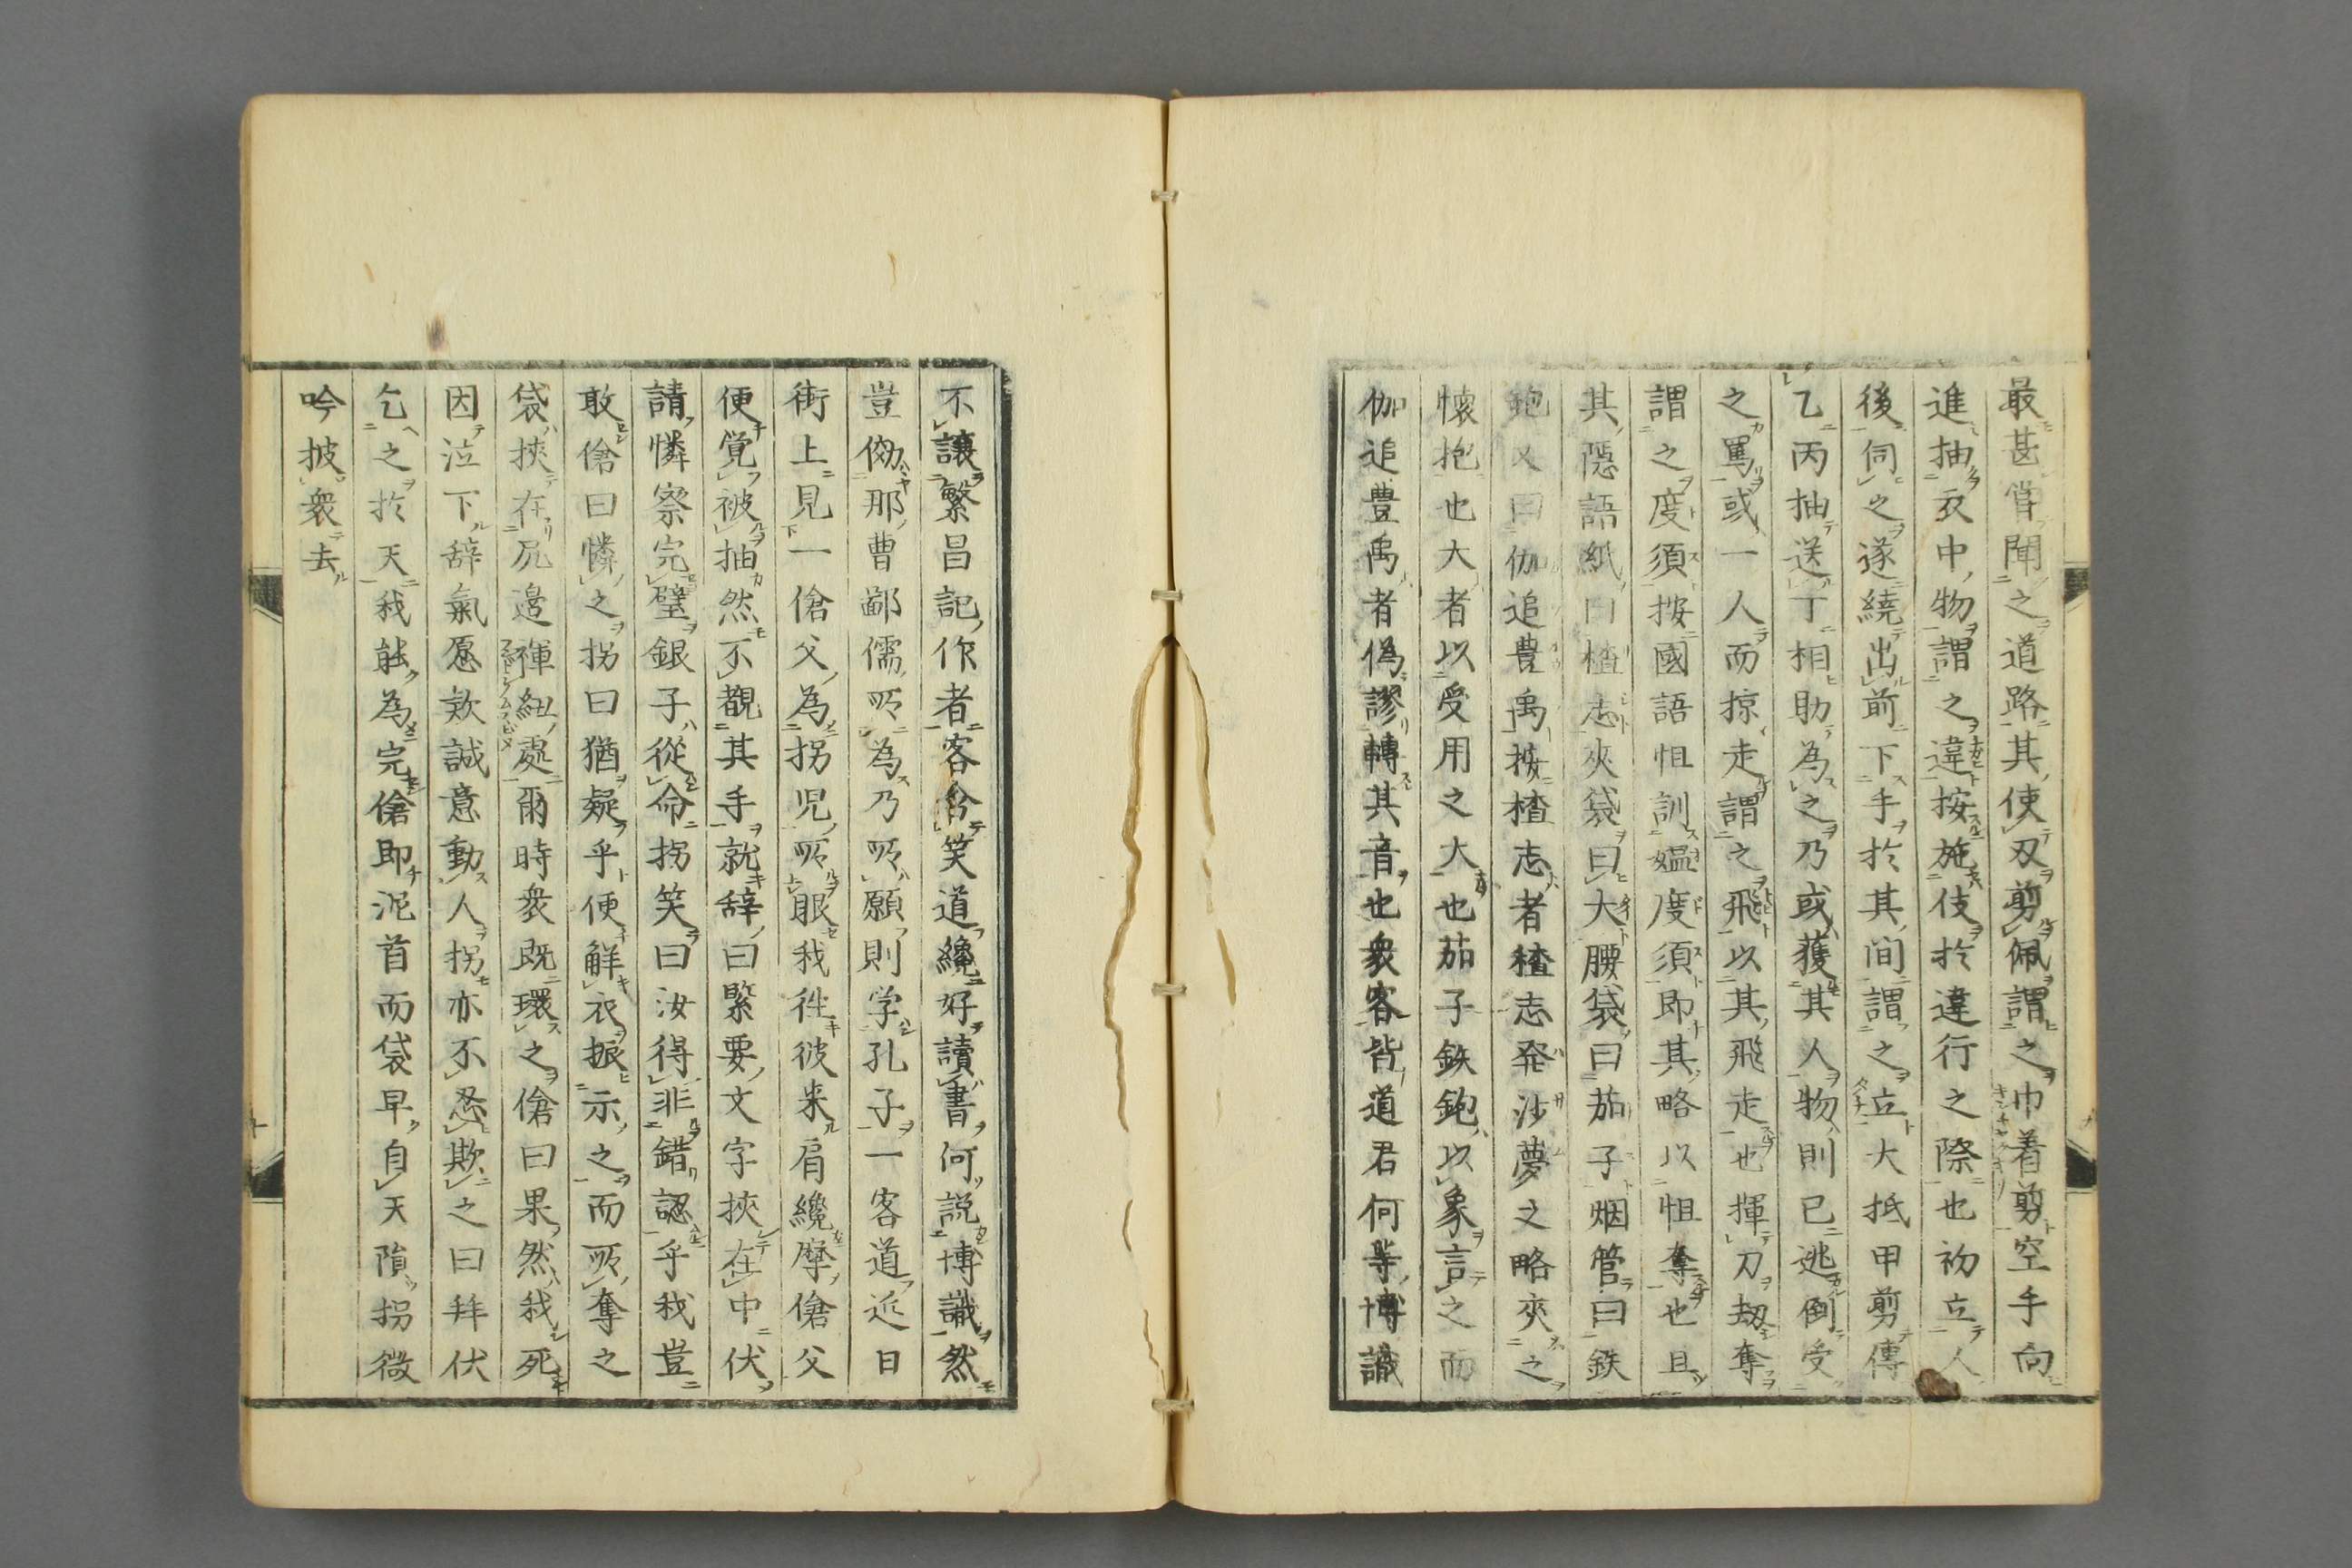 最甚嘗聞之道路其使刃剪佩謂之巾着剪空手向
進抽衣中物謂之違按施伎於違行之際也初立人
後伺之遂繞出前下手於其間謂之立大抵甲剪傳
乙丙抽送丁相助為之乃或獲其人物則已逃倒受
之罵或一人而掠走謂之飛以其飛走也揮刀劫奪
謂之度須按國語怚訓媼度須即其略以怚奪也且
其隠語紙曰楂志夾袋曰大腰袋曰茄子烟管曰鉄
鉋又曰伽追豊禹按楂志者楂志発沙夢之略夾之
懐抱也大者以受用之大也茄子鉄鉋以象言之而
伽追豊禹者偽謬轉其音也衆客皆道君何等博識
不讓繁昌記作者客含笑道纔好讀書何説博識然
豈倣那曹鄙儒所為乃所願則学孔子一客道近日
街上見一傖父為拐児所眼我徃彼来肩纔摩傖父
便覚被抽然不覩其手就辞曰緊要文字挾在中伏
請憐察完璧銀子從命拐笑曰汝得非錯認乎我豈
敢傖曰憐之拐曰猶疑乎便解衣振示之而所奪之
袋挾在尻邊褌紐處爾時衆既環之傖曰果然我死
因泣下辞氣愿欵誠意動人拐亦不忍欺之曰拜伏
乞之於天我能為完傖即泥首而袋早自天隕拐微
吟披衆去
十